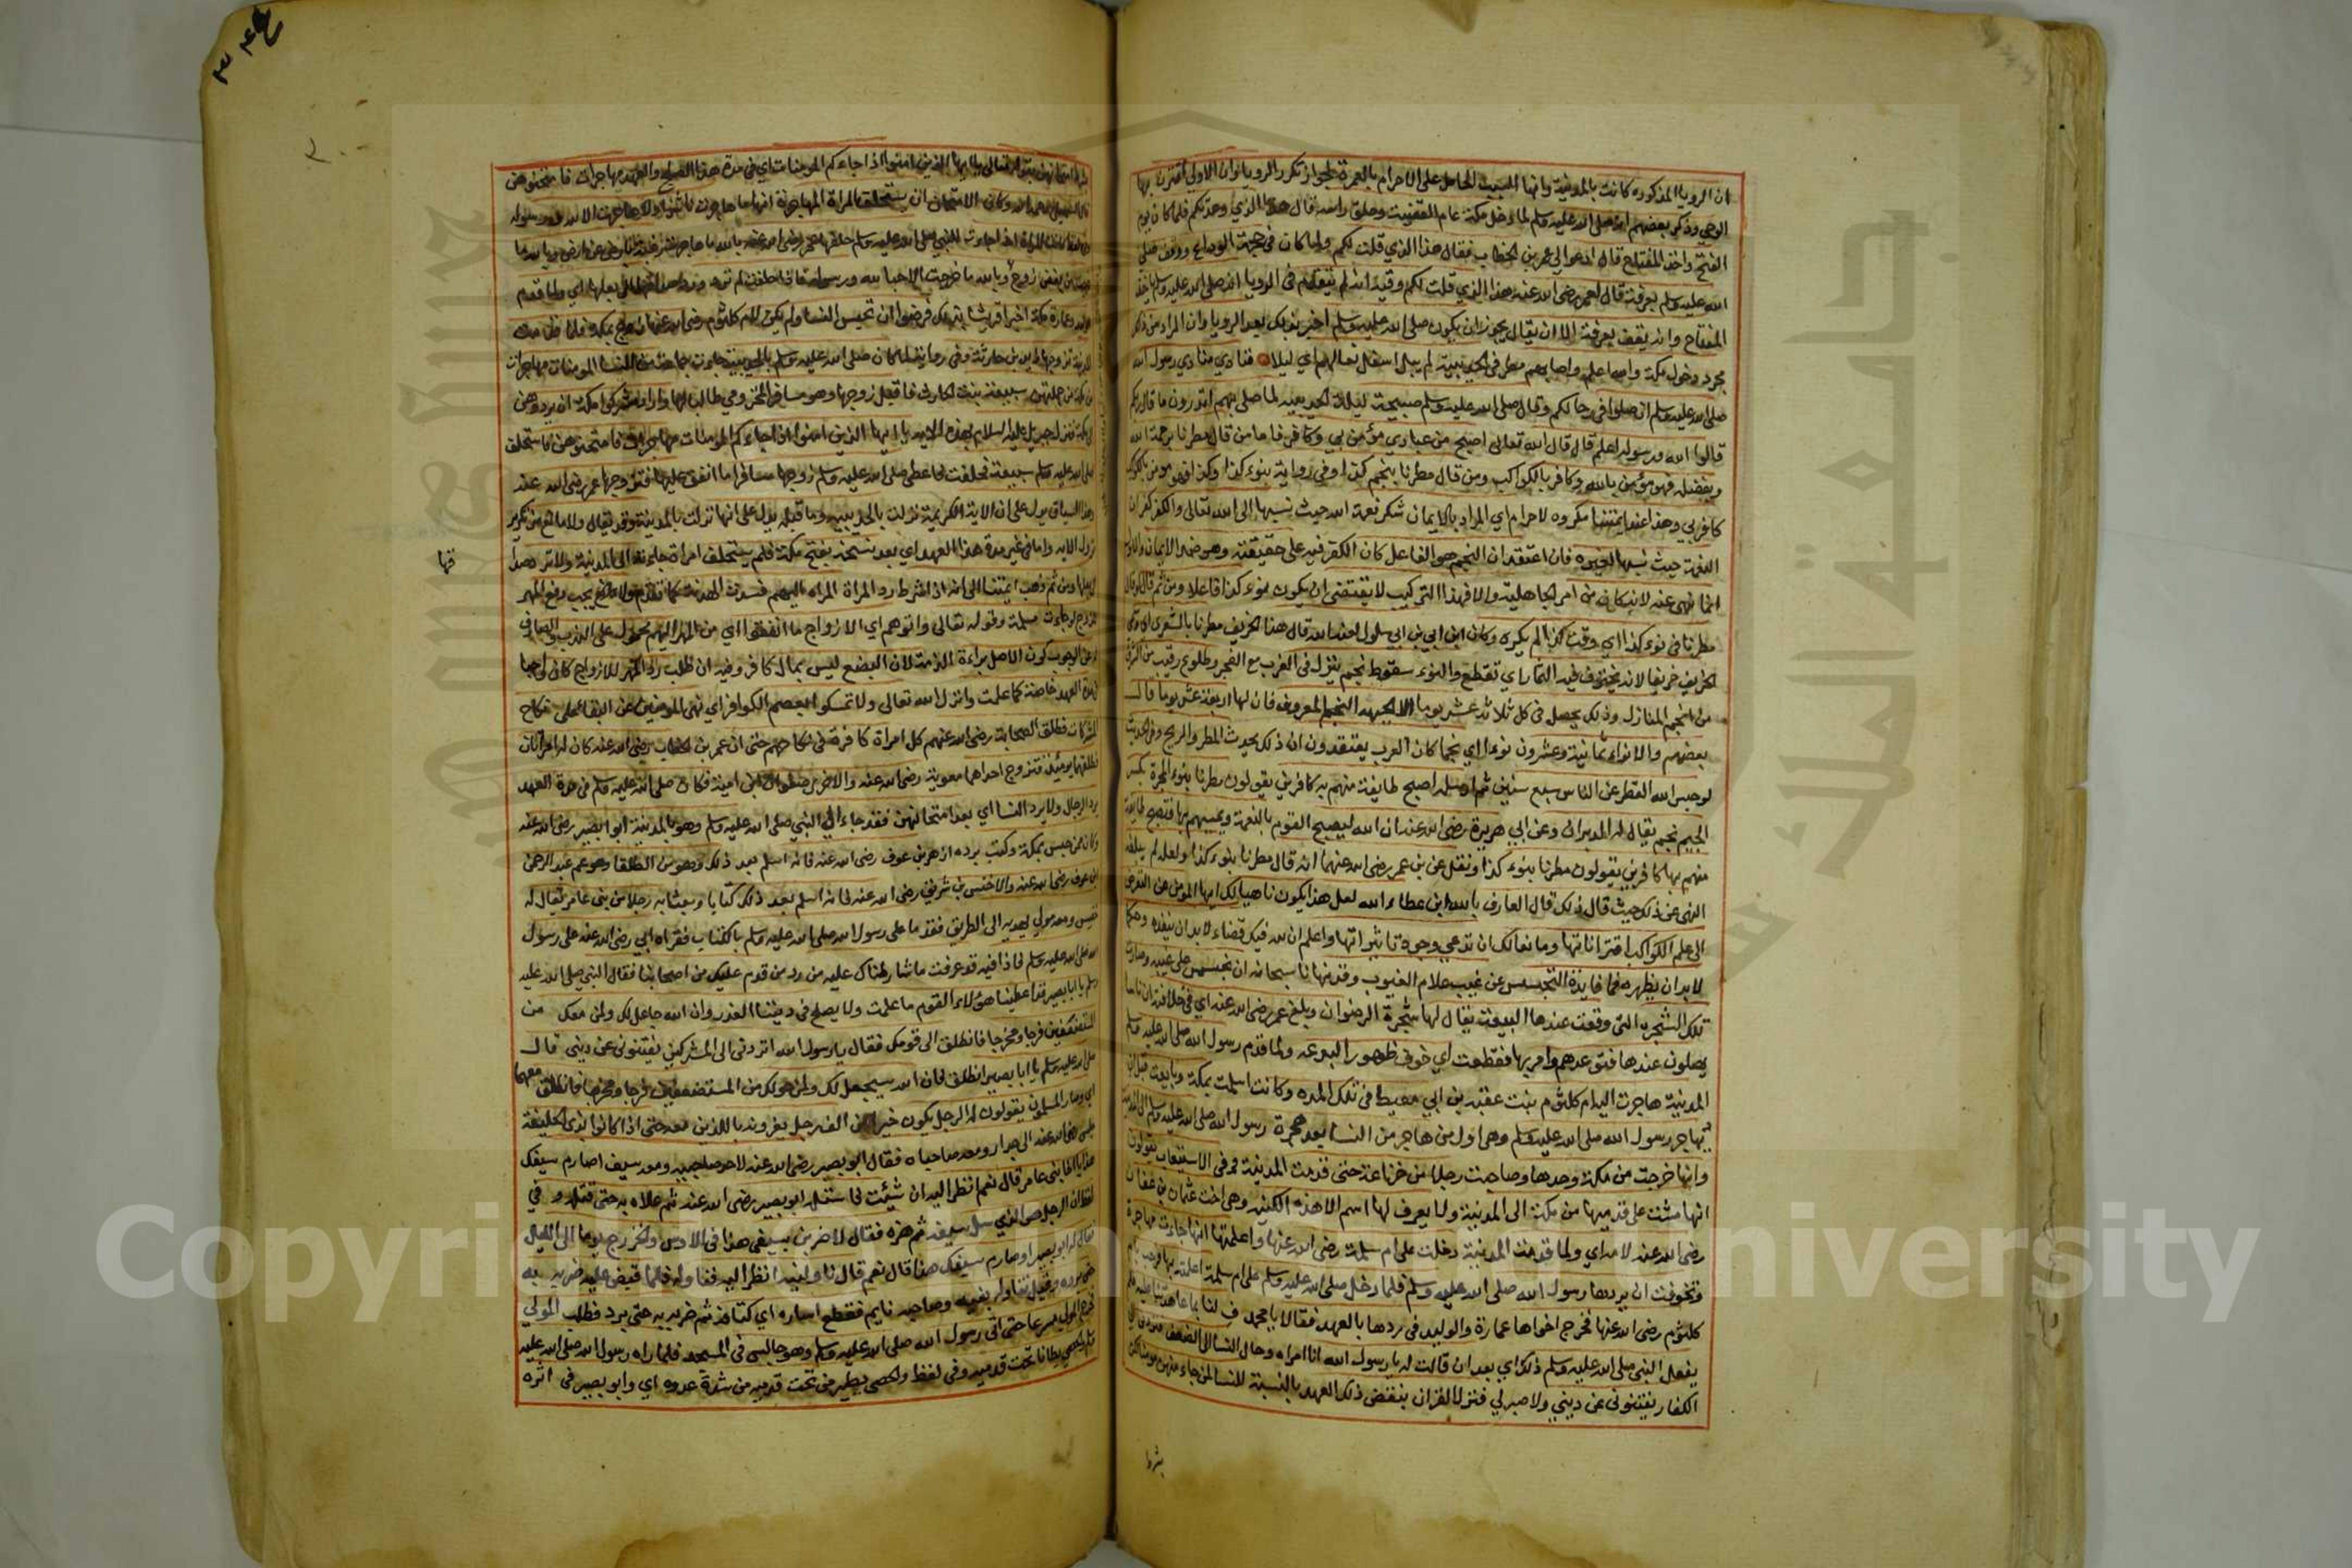 ان الرويا المذكوره كانت بالمدينة وانها السبب الحامل على الاحرام بالعمرة لجواز تكرر الرويا وان الاولي اقترن بها
الوحي وذكر بعضهم انه صلى الله عليه وسلم لما دخل مكة عام القضية وحلق راسه قال هذا الذي وعدتكم فلما كان يوم
الفتح واخذ المفتاح قال ادعوا لي عمر بن الخطاب فقال هذا الذي قلت لكم ولما كان في حجة الوداع ووقف صلى
الله عليه وسلم بعرفة قال لعمر رضي الله عنه هذا الذي قلت لكم وفيه انه لم يتقدم في الرويا انه صلى الله عليه وسلم ياخذ
المفتاح وانه يقف بعرفة الا ان يقال يجوز ان يكون صلى الله عليه وسلم اخبر بذلك بعد الرويا وان المراد من ذكر
مجرد دخول مكة والله اعلم واصابهم مطر في الحديبية لم يبل اسفل نعالهم اي ليلا فنادي منادي رسول الله
صلى الله عليه وسلم ان صلوا في رحالكم وقال صلى الله عليه وسلم صبيحة ليلة الحديبيه لما صلى بهم اتدرون ما قال ربكم
قالوا الله ورسوله اعلم قال قال الله تعالى اصبح من عبادي مؤمن بي وكافر فاما من قال مطرنا برحمة الله
وبفضله فهو مؤمن بالله وكافر بالكواكب ومن قال مطرنا بنجم كذا وفي رواية بنوء كذا وكذا فهو مومن بالكوكب
كافر بي وهذا عند ايمتنا مكروه لا حرام اي المراد بالايمان شكر نعمة الله حيث نسبها الى الله تعالى والكفر كفران
النعمة حيث نسبها لغيره فان اعتقد ان النجم هو الفاعل كان الكفر فيه على حقيقته وهو ضد الايمان
انما نهي عنه لانه كان من امر الجاهلية والا فهذا التركيب لا يقتضي ان يكون نوء كذا فاعلا ومن ثم قال
مطرنا في نوء كذا اي وقت كذا لم يكره وكان ابن ابي بن ابي سلول لعنه الله قال هذا الخريف مطرنا بالشعري
الخريف خريفا لانه تخترف فيه الثمار اي تقطع والنوء سقوط نجم ينزل في الغرب مع الفجر وطلوع رقيبه من الشرق
من انجم المنازل وذلك يحصل في كل ثلاثة عشر يوما الا الجبهه النجم المعروف فان لها اربعة عشر يوما قال
بعضهم والانواء ثمانية وعشرون نوءا اي نجما كان العرب يعتقدون ان ذلك يحدث المطر والريح وفي الحديث
لو حبس الله القطر عن الناس سبع سنين ثم ارسله اصبح طايفة منهم به كافرين يقولون مطرنا بنوء المجدح بكسر
الجيم نجم يقال له الدبران وعن ابي هريرة رضي الله عنه ان الله ليصبح القوم بالنعمة ويمسيهم بها فتصبح طايفة
منهم بها كافرين يقولون مطرنا بنوء كذا ونقل عن بن عمر رضي الله عنهما انه قال مطرنا بنوء كذا ولعله لم يبلغه
النهي عن ذلك حيث قال ذلك قال العارف بالله ابن عطاء الله لعل هذا يكون ناهيا لك ايها المومن عن التعرض
الى علم الكواكب اقتراناتها ومانعا لك ان تدعي وجود تاثيراتها واعلم ان لله فيك قضاء لابد ان ينفذه وحكما
لابد ان يظهره فما فايدة التجسس عن غيب علام الغيوب وقد نهانا سبحانه ان نتجسس على غيبه وصارت
تلك الشجره التي وقعت عندها البيعة يقال لها شجرة الرضوان وبلغ عمر رضي الله عنه اي في خلافته ان ناسا
يصلون عندها فتوعدهم وامر بها فقطعت اي خوف ظهور البدعه ولما قدم رسول الله صلى الله عليه وسلم
المدينة هاجرت اليه ام كلثوم بنت عقبه بن ابي معيط في تلك المده وكانت اسلمت بمكة وبايعت قبل ان
يهاجر رسول الله صلى الله عليه وسلم وهي اول من هاجر من النسا بعد هجرة رسول الله صلى الله عليه وسلم الى المدينة
وانها خرجت من مكة وحدها وصاحبت رجلا من خزاعة حتى قدمت المدينة وفي الاستيعاب يقولون
انها مشت على قدميها من مكة الى المدينة ولا يعرف لها اسم الا هذه الكنيه وهي اخت عثمان بن عفان
رضي الله عنه لامه اي ولما قدمت المدينة دخلت على ام سلمة رضي الله عنها واعلمتها انها جاءت مهاجرة
وتخوفت ان يردها رسول الله صلى الله عليه وسلم فلما دخل صلى الله عليه وسلم على ام سلمة اعلمته بها فرحب بام
كلثوم رضي الله عنها فخرج اخواها عمارة والوليد في ردها بالعهد فقالا يا محمد ف لنا بما عاهدتنا عليه فلم
يفعل النبي صلى الله عليه وسلم ذلك اي بعد ان قالت له يا رسول الله انا امراه وحال النسا الى الضعف
الكفار يفتنوني عن ديني ولا صبر لي فنزل القران بنقض ذلك العهد بالنسبة للنسا لمن جاء منهن مومنا
بشرط
بشرط امتحانهن بقوله تعالى يا ايها الذين امنوا اذا جاءكم المومنات اي في مدة هذا الصلح والعهد مهاجرات فامتحنوهن
وكان الامتحان ان تستحلف المراة المهاجرة انها ما هاجرت ناشزا ولا هاجرت الا لله ورسوله
كانت المراة اذا جاءت للنبي صلى الله عليه وسلم حلفها عمر رضي الله عنه بالله ما خرجت رغبة بارض عن ارض وبالله ما
خرجت من بغض زوج وبالله ما خرجت الا حبا لله ورسوله فاذا حلفت لم ترد ورد صداقها الى بعلها اي ولما قدم
الوليد وعمارة مكة اخبرا قريشا بذلك فرضوا ان تحبس النسا ولم يكن لام كلثوم رضي الله عنها زوج بمكة فلما قدمت
المدينة تزوجها زيد بن حارثة وفي رواية لما كان صلى الله عليه وسلم بالحديبية جاءت جماعة من النسا المومنات مهاجرات
من مكة من جملتهن سبيعة بنت الحارث فاقبل زوجها وهو مسافر المخزومي طالبا لها واراد مشركوا مكة ان يردوهن
الى مكة فنزل جبريل عليه السلام بهذه الايه يا ايها الذين امنوا اذا جاءكم المومنات مهاجرات فامتحنوهن فاستحلف
صلى الله عليه وسلم سبيعة فحلفت فاعطى صلى الله عليه وسلم زوجها مسافرا ما انفق عليها فتزوجها عمر رضي الله عنه
وهذا السياق يدل على ان الاية الكريمة نزلت بالحديبيه وما قبله يدل على انها نزلت بالمدينة وقد يقال ولا مانع من تكرير
نزول الايه واما في غير مدة هذا العهد اي بعد نسخه بفتح مكة فلم يستحلف امراة جاءته الى المدينة ولا ترد صداقها
فها
الى بعلها ومن ثم ذهب ايمتنا الى انه اذا شرط رد المراة المراه اليهم فسدت الهدنة كما تقدم ولا يجب دفع المهر
للزوج لو جاءت مسلمة وقوله تعالى واتوهم اي الازواج ما انفقوا اي من المهر اليهم محمول على الندب والصارف
له عن الوجوب كون الاصل براءة الذمة لان البضع ليس بمال كافر وفيه ان طلب رد المهر للازواج كان واجبا
في مدة العهد خاصة كما علمت وانزل الله تعالى ولا تمسكوا بعصم الكوافر اي نهي المومنين عن البقاء على نكاح
المشركات فطلق الصحابة رضي الله عنهم كل امراة كافرة في نكاحهم حتى ان عمر بن الخطاب رضي الله عنه كان له امراتان
فطلقهما يومئذ فتزوج احداهما معوية رضي الله عنه والاخرى صفوان بن امية فكان صلى الله عليه وسلم في مدة العهد
يرد الرجال ولا يرد النسا اي بعد امتحانهن فقد جاء الى النبي صلى الله عليه وسلم وهو بالمدينة ابو بصير رضي الله عنه
وكان ممن حبس بمكة وكتب برده ازهر بن عوف رضي الله عنه فانه اسلم بعد ذلك وهو من الطلقا وهو عم عبد الرحمن
بن عوف رضي الله عنه والاخنس بن شريق رضي الله عنه فانه اسلم بعد ذلك كتابا وبعثا به رجلا من بني عامر يقال له
خنيس ومعه مولي يهديه الى الطريق فقدما على رسول الله صلى الله عليه وسلم بالكتاب فقراه ابي رضي الله عنه على رسول
الله صلى الله عليه وسلم فاذا فيه قد عرفت ما شارطناك عليه من رد من قدم عليك من اصحابنا فقال النبي صلى الله عليه
وسلم يا ابا بصير قد اعطينا هؤلاء القوم ما علمت ولا يصلح في ديننا الغدر وان الله جاعل لك ولمن معك من
المستضعفين فرجا ومخرجا فانطلق الى قومك فقال يا رسول الله اتردني الى المشركين يفتنوني عن ديني قال
صلى الله عليه وسلم يا ابا بصير انطلق فان الله سيجعل لك ولمن هو لك من المستضعفين فرجا ومخرجا فانطلق معهما
اي وصار المسلمون يقولون له الرجل يكون خيرا من الف رجل يغرونه باللذين معه حتى اذا كانوا بذي الحليفة
جلس رضي الله عنه الى جدار ومعه صاحباه فقال ابو بصير رضي الله عنه لاحد صاحبيه ومعه سيف اصارم سيفك
هذا يا اخا بني عامر قال نعم انظر اليه ان شيئت فاستله ابو بصير رضي الله عنه ثم علاه به حتى قتله وفي
لفظ ان الرجل هو الذي سل سيفه ثم هزه فقال لاضربن بسيفي هذا في الاوس والخزرج يوما الى الليل
فقال له ابو بصير او صارم سيفك هذا قال نعم قال ناولنيه انظر اليه فناوله فلما قبض عليه ضربه به
حتى برد وقيل تناوله بفيه وصاحبه نايم فقطع اساره اي كتافه ثم ضربه به حتى برد فطلب المولي
فخرج المولي سرعا حتى اتى رسول الله صلى الله عليه وسلم وهو جالس في المسجد فلما راه رسول الله صلى الله عليه
وسلم والحصي يطن تحت قدميه وفي لفظ والحصي يطير من تحت قدميه من شدة عدوه اي وابو بصير في اثره
Copyright © King Saud University
جامعة الملك سعود